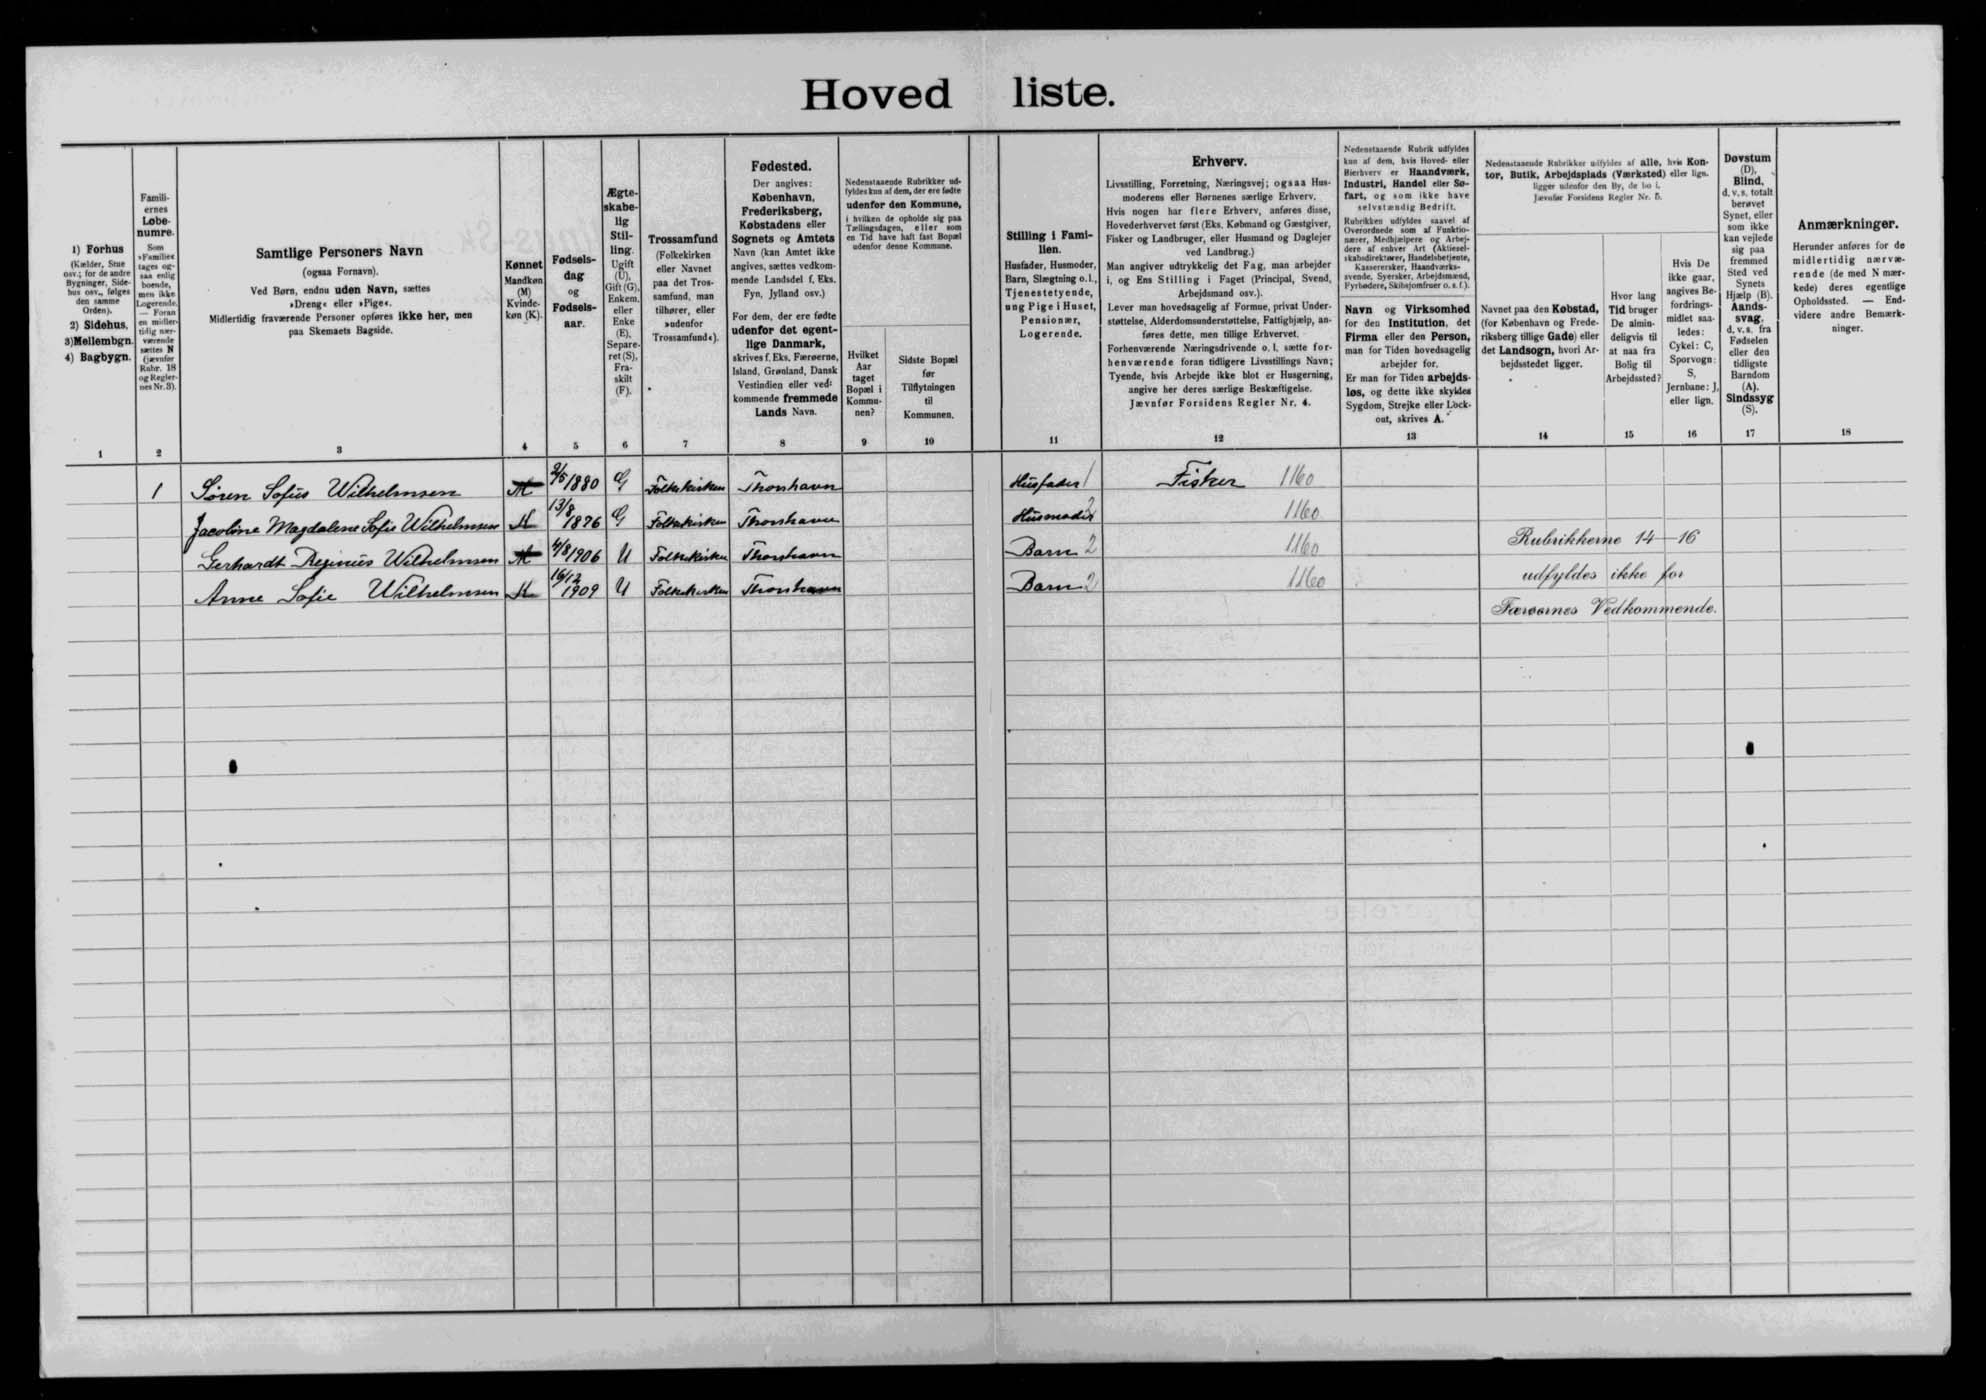 Hoved liste.
1) Forhus
(Kælder, Stue
osv.; for de andre
Bygninger, Side-
hus osv., følges
den samme
Orden).
2) Sidehus,
3) Mellembgn.
4) Bagbygn.
Famili-
ernes
Løbe-
numre.
Som
»Familie«
tages og-
saa enlig
boende,
men ikke
Logerende.
— Foran
en midler-
tidig nær-
værende
sættes N
(jævnfør
Rubr. 18
og Regler-
nes Nr. 3).
Samtlige Personers Navn
(ogsaa Fornavn).
Ved Børn, endnu uden Navn, sættes
»Dreng« eller »Pige«.
Midlertidig fraværende Personer opføres ikke her, men
paa Skemaets Bagside.
Kønnet
Mandkøn
(M)
Kvinde-
køn (K).
Fødsels-
dag
og
Fødsels-
aar.
Ægte-
skabe-
lig
Stil-
ling.
Ugift
(U),
Gift (G),
Enkem.
eller
Enke
(E),
Separe-
ret (S),
Fra-
skilt
(F).
Trossamfund
(Folkekirken
eller Navnet
paa det Tros-
samfund, man
tilhører, eller
»udenfor
Trossamfund«).
Fødested.
Der angives:
København,
Frederiksberg,
Købstadens eller
Sognets og Amtets
Navn (kan Amtet ikke
angives, sættes vedkom-
mende Landsdel f. Eks.
Fyn, Jylland osv.)
For dem, der ere fødte
udenfor det egent-
lige Danmark,
skrives f. Eks. Færøerne,
Island, Grønland, Dansk
Vestindien eller ved-
kommende fremmede
Lands Navn.
Nedenstaaende Rubrikker ud-
fyldes kun af dem, der ere fødte
udenfor den Kommune,
i hvilken de opholde sig paa
Tællingsdagen, eller som
en Tid have haft fast Bopæl
udenfor denne Kommune.
Hvilket
Aar
taget
Bopæl i
Kommu-
nen?
Sidste Bopæl
før
Tilflytningen
til
Kommunen.
Stilling i Fami-
lien.
Husfader, Husmoder,
Barn, Slægtning o.l.,
Tjenestetyende,
ung Pige i Huset,
Pensionær,
Logerende.
Erhverv.
Livsstilling, Forretning, Næringsvej; ogsaa Hus-
moderens eller Børnenes særlige Erhverv.
Hvis nogen har flere Erhverv, anføres disse,
Hovederhvervet først (Eks. Købmand og Gæstgiver,
Fisker og Landbruger, eller Husmand og Daglejer
ved Landbrug.)
Man angiver udtrykkelig det Fag, man arbejder
i, og Ens Stilling i Faget (Principal, Svend,
Arbejdsmand osv.).
Lever man hovedsagelig af Formue, privat Under-
støttelse, Alderdomsunderstøttelse, Fattighjælp, an-
føres dette, men tillige Erhvervet.
Forhenværende Næringsdrivende o. l. sætte for-
henværende foran tidligere Livsstillings Navn;
Tyende, hvis Arbejde ikke blot er Husgerning,
angive her deres særlige Beskæftigelse.
Jævnfør Forsidens Regler Nr. 4.
Nedenstaaende Rubrik udfyldes
kun af dem, hvis Hoved- eller
Bierhverv er Haandværk,
Industri, Handel eller Sø-
fart, og som ikke have
selvstændig Bedrift.
Rubrikken udfyldes saavel af
Overordnede som af Funktio-
nærer, Medhjælpere og Arbej-
dere af enhver Art (Aktiesel-
skabsdirektører, Handelsbetjente,
Kasserersker, Haandværks-
svende, Syersker, Arbejdsmænd,
Fyrbødere, Skibsjomfruer o. s. f.).
Navn og Virksomhed
for den Institution, det
Firma eller den Person,
man for Tiden hovedsagelig
arbejder for.
Er man for Tiden arbejds-
løs, og dette ikke skyldes
Sygdom, Strejke eller Lock-
out, skrives A.
Nedenstaaende Rubrikker udfyldes af alle, hvis Kon-
tor, Butik, Arbejdsplads (Værksted) eller lign.
ligger udenfor den By, de bo i.
Jævnfør Forsidens Regler Nr. 5.
Navnet paa den Købstad,
(for København og Frede-
riksberg tillige Gade) eller
det Landsogn, hvori Ar-
bejdsstedet ligger.
Hvor lang
Tid bruger
De almin-
deligvis til
at naa fra
Bolig til
Arbejdssted?
Hvis De
ikke gaar,
angives Be-
fordrings-
midlet saa-
ledes:
Cykel: C,
Sporvogn:
S,
Jernbane: J,
eller lign.
Døvstum
(D),
Blind,
d. v. s. totalt
berøvet
Synet, eller
som ikke
kan vejlede
sig paa
fremmed
Sted ved
Synets
Hjælp (B).
Aands-
svag,
d. v. s. fra
Fødselen
eller den
tidligste
Barndom
(A).
Sindssyg
(S).
Anmærkninger.
Herunder anføres for de
midlertidig nærvæ-
rende (de med N mær-
kede) deres egentlige
Opholdssted. — End-
videre andre Bemærk-
ninger.
1 2 3 4 5 6 7 8 9 10 11 12 13 14 15 16 17 18
1 Søren Sofus Wilhelmsen M 2/5 1880 G Folkekirken Thorshavn Husfader 1 Fisker 1160
Jacobine Magdalene Sofie Wilhelmsen K 13/8 1876 G Folkekirken Thorshavn Husmoder 2 1160
Gerhardt Reginius Wilhelmsen M 4/8 1906 U Folkekirken Thorshavn Barn 2 1160 Rubrikkerne 14-16
Anne Sofie Wilhelmsen K 16/12 1909 U Folkekirken Thorshavn Barn 2 1160 udfyldes ikke for
Færøernes Vedkommende.